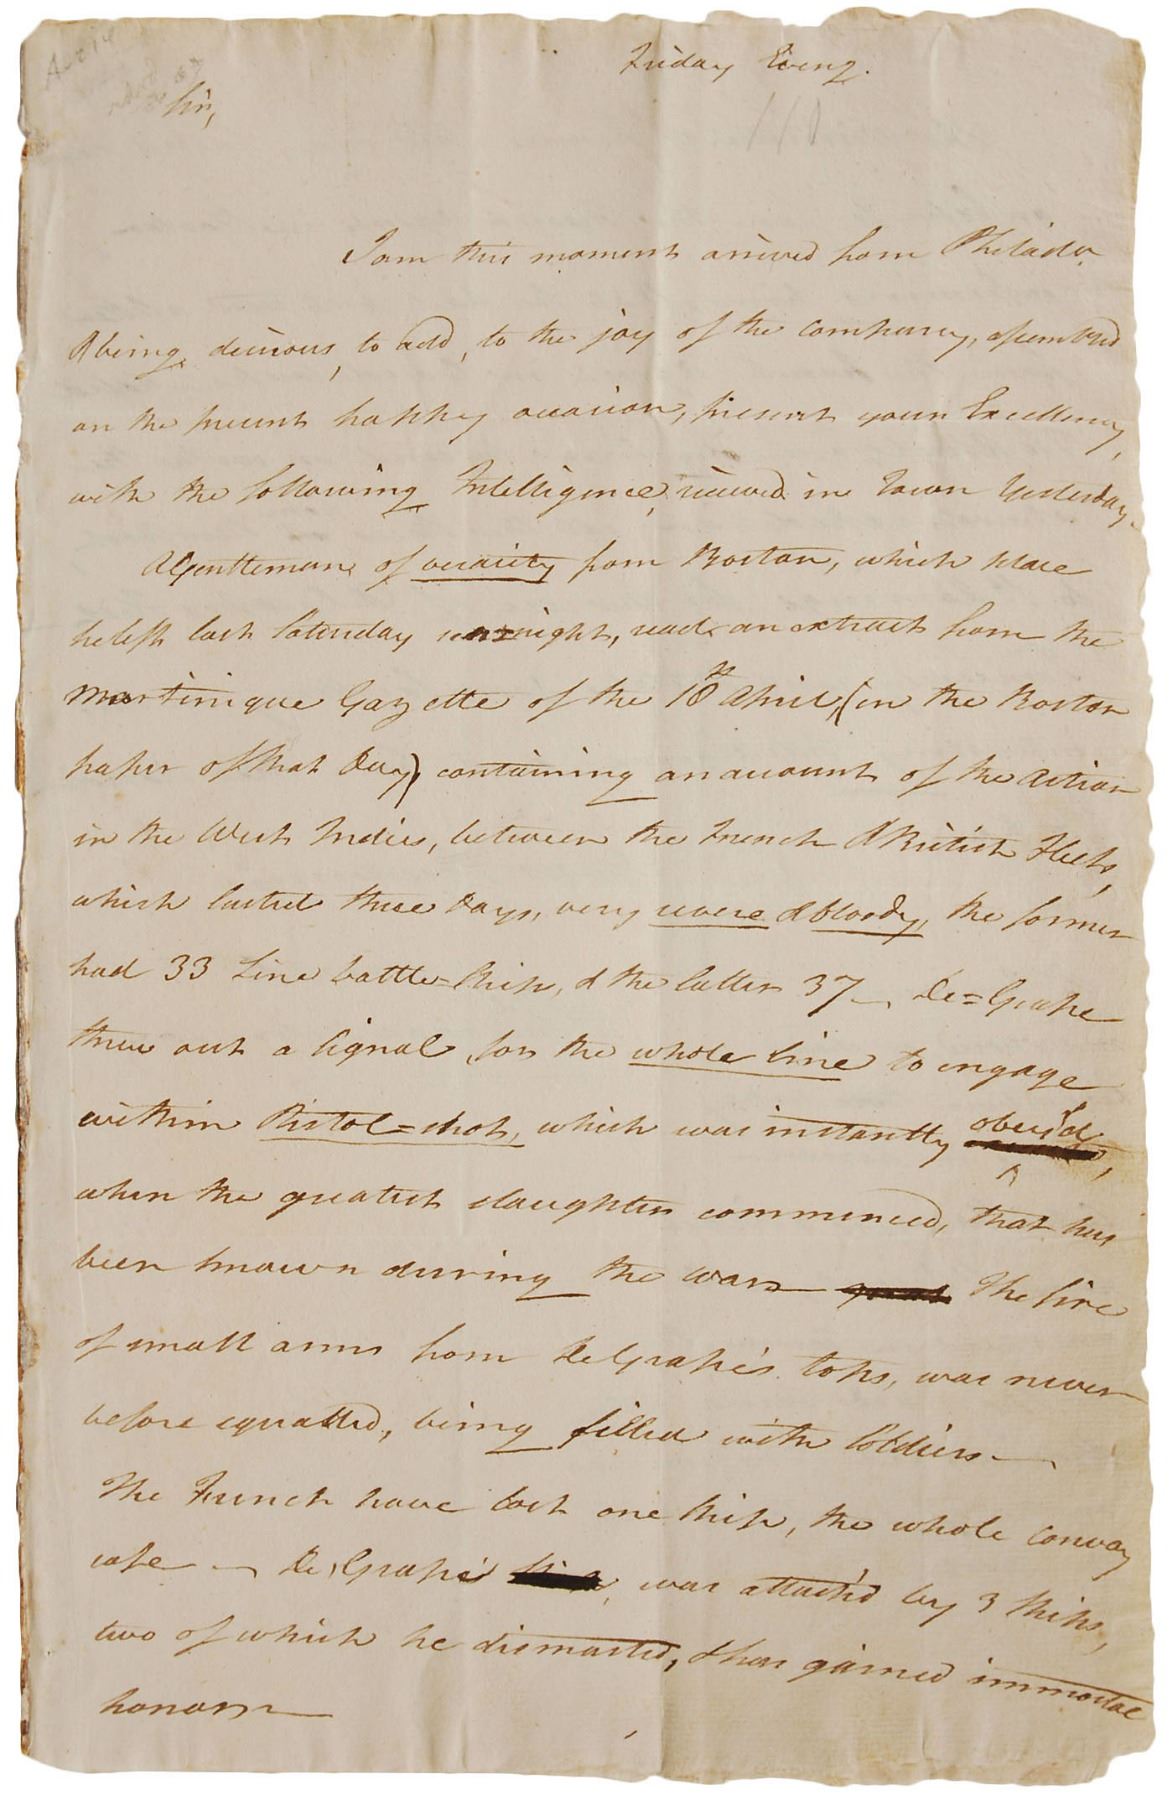 Friday Eveng.
Sir,
I am this moment arrived from Philada.
& being desirous, to add, to the joy of the company, assembled
on the present happy occasion, present your Excellency,
with the following Intelligence, received in Town Yesterday.
A Gentleman of veracity from Boston, which place
he left last Saturday sennight, read an extract from the
Martinique Gazette of the 18th April, (in the Boston
paper of that day) containing an account of the Action
in the West Indies, between the French & British Fleets,
which lasted three Days, very severe & bloody, the former
had 33 Line battle=Ships, & the latter 37 — De=Grasse
threw out a signal, for the whole line to engage
within Pistol=shot, which was instantly obey'd,
when the greatest slaughter commenced, that has
been known during the war — The fire
of small arms from DeGrasse's tops, was never
before equalled, being filled with Soldiers —
The French have lost one Ship, the whole convoy
safe — De Grasse was attack'd by 3 Ships,
two of which he dismasted, & has gained immortal
honour —